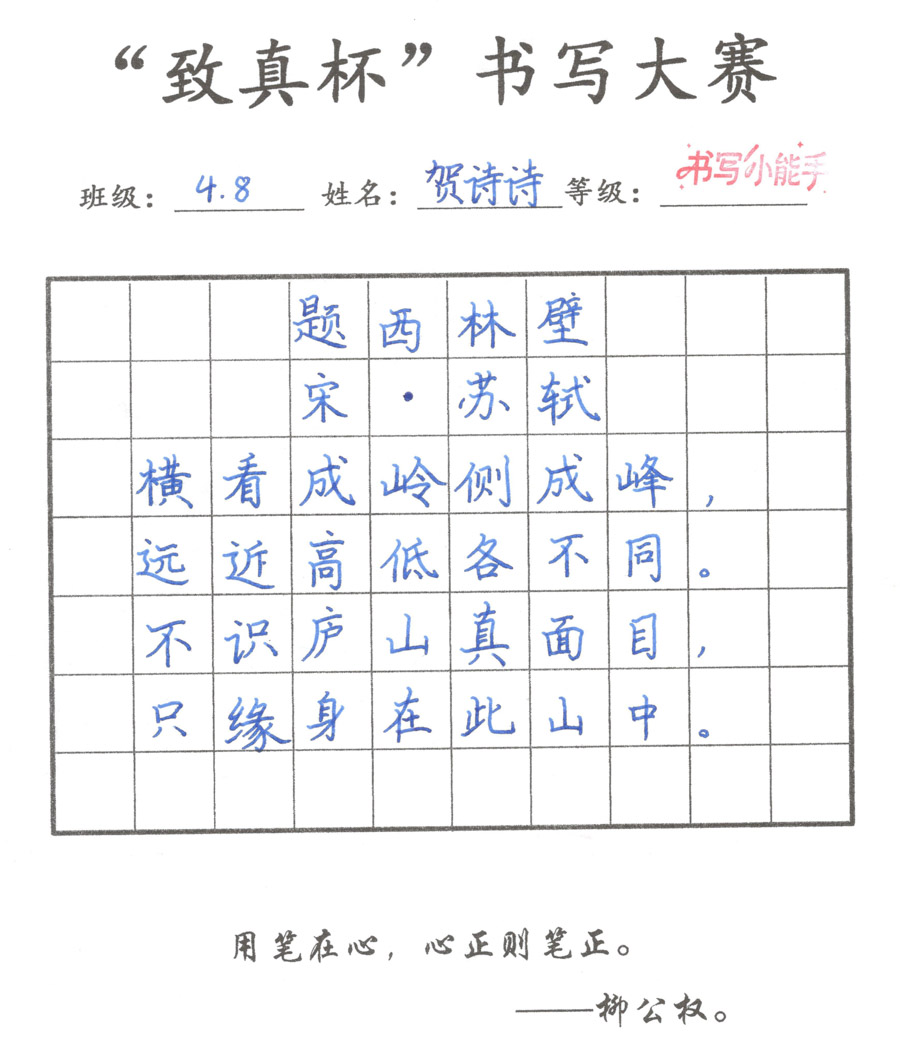 “致真杯”书写大赛
班级：4.8 姓名：贺诗诗 等级：书写小能手
题西林壁
宋·苏轼
横看成岭侧成峰，
远近高低各不同。
不识庐山真面目，
只缘身在此山中。
用笔在心，心正则笔正。
——柳公权。